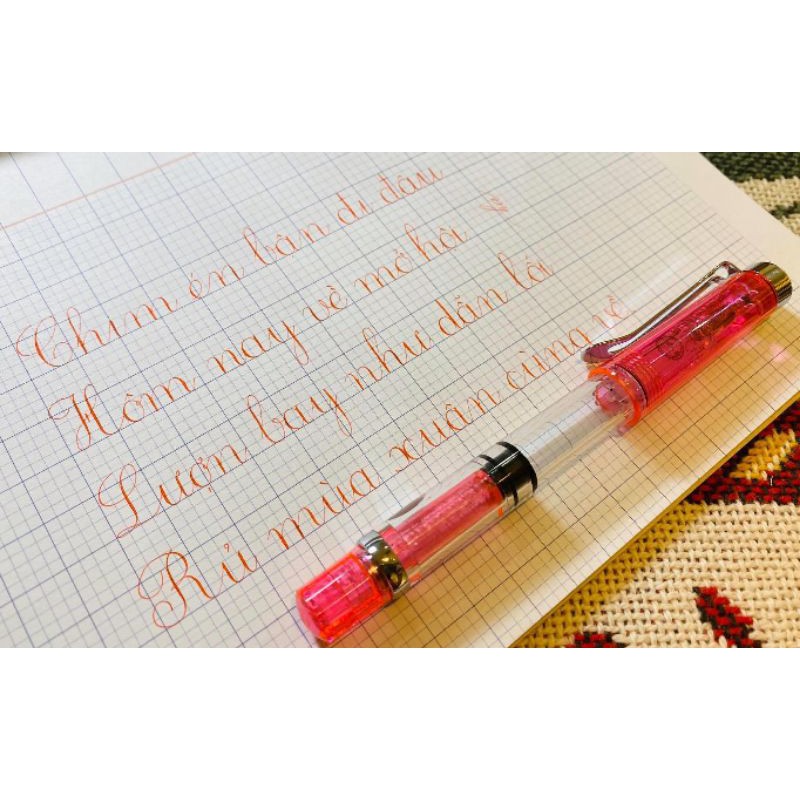 Chim én bận đi đâu
Hôm nay về mở hội
Lượn bay như dẫn lối
Rủ mùa xuân cùng về